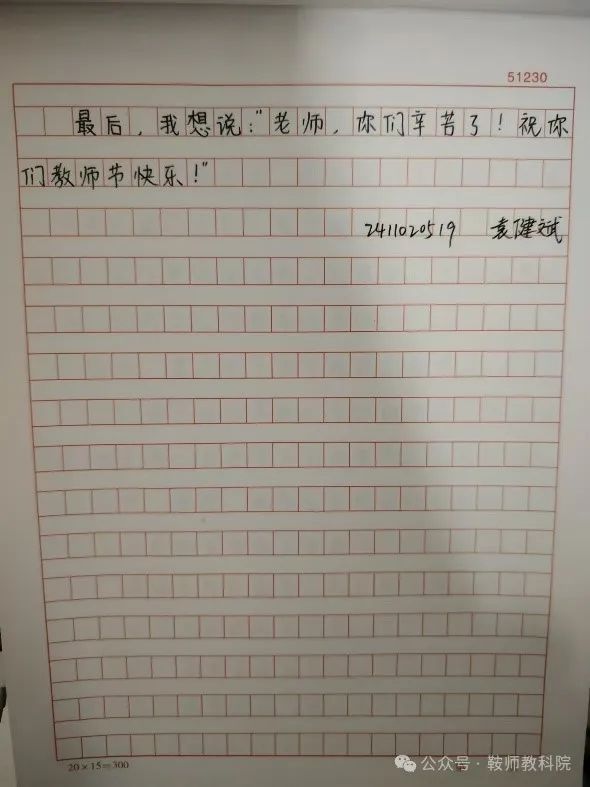 51230
最后，我想说："老师，你们辛苦了！祝你
们教师节快乐！"
2411020519 袁健斌
20×15=300
公众号·鞍师教科院